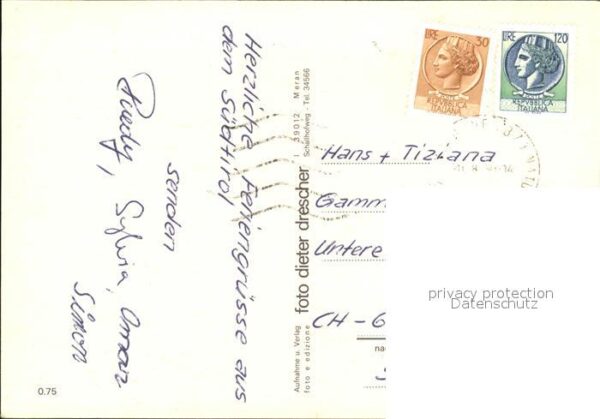 Herzliche Feriengrüsse aus
dem Südtirol
senden
Ruedy,
Sylvia,
Simon
Aufnahme u. Verlag
foto e edizione
foto dieter drescher
I 39012 Meran
Schallhofweg - Tel. 34566
LIRE 30
POSTE
REPVBBLICA
ITALIANA
LIRE 120
POSTE
REPVBBLICA
ITALIANA
Hans + Tiziana
Gamm
Untere
CH - 6
na
privacy protection
Datenschutz
0.75